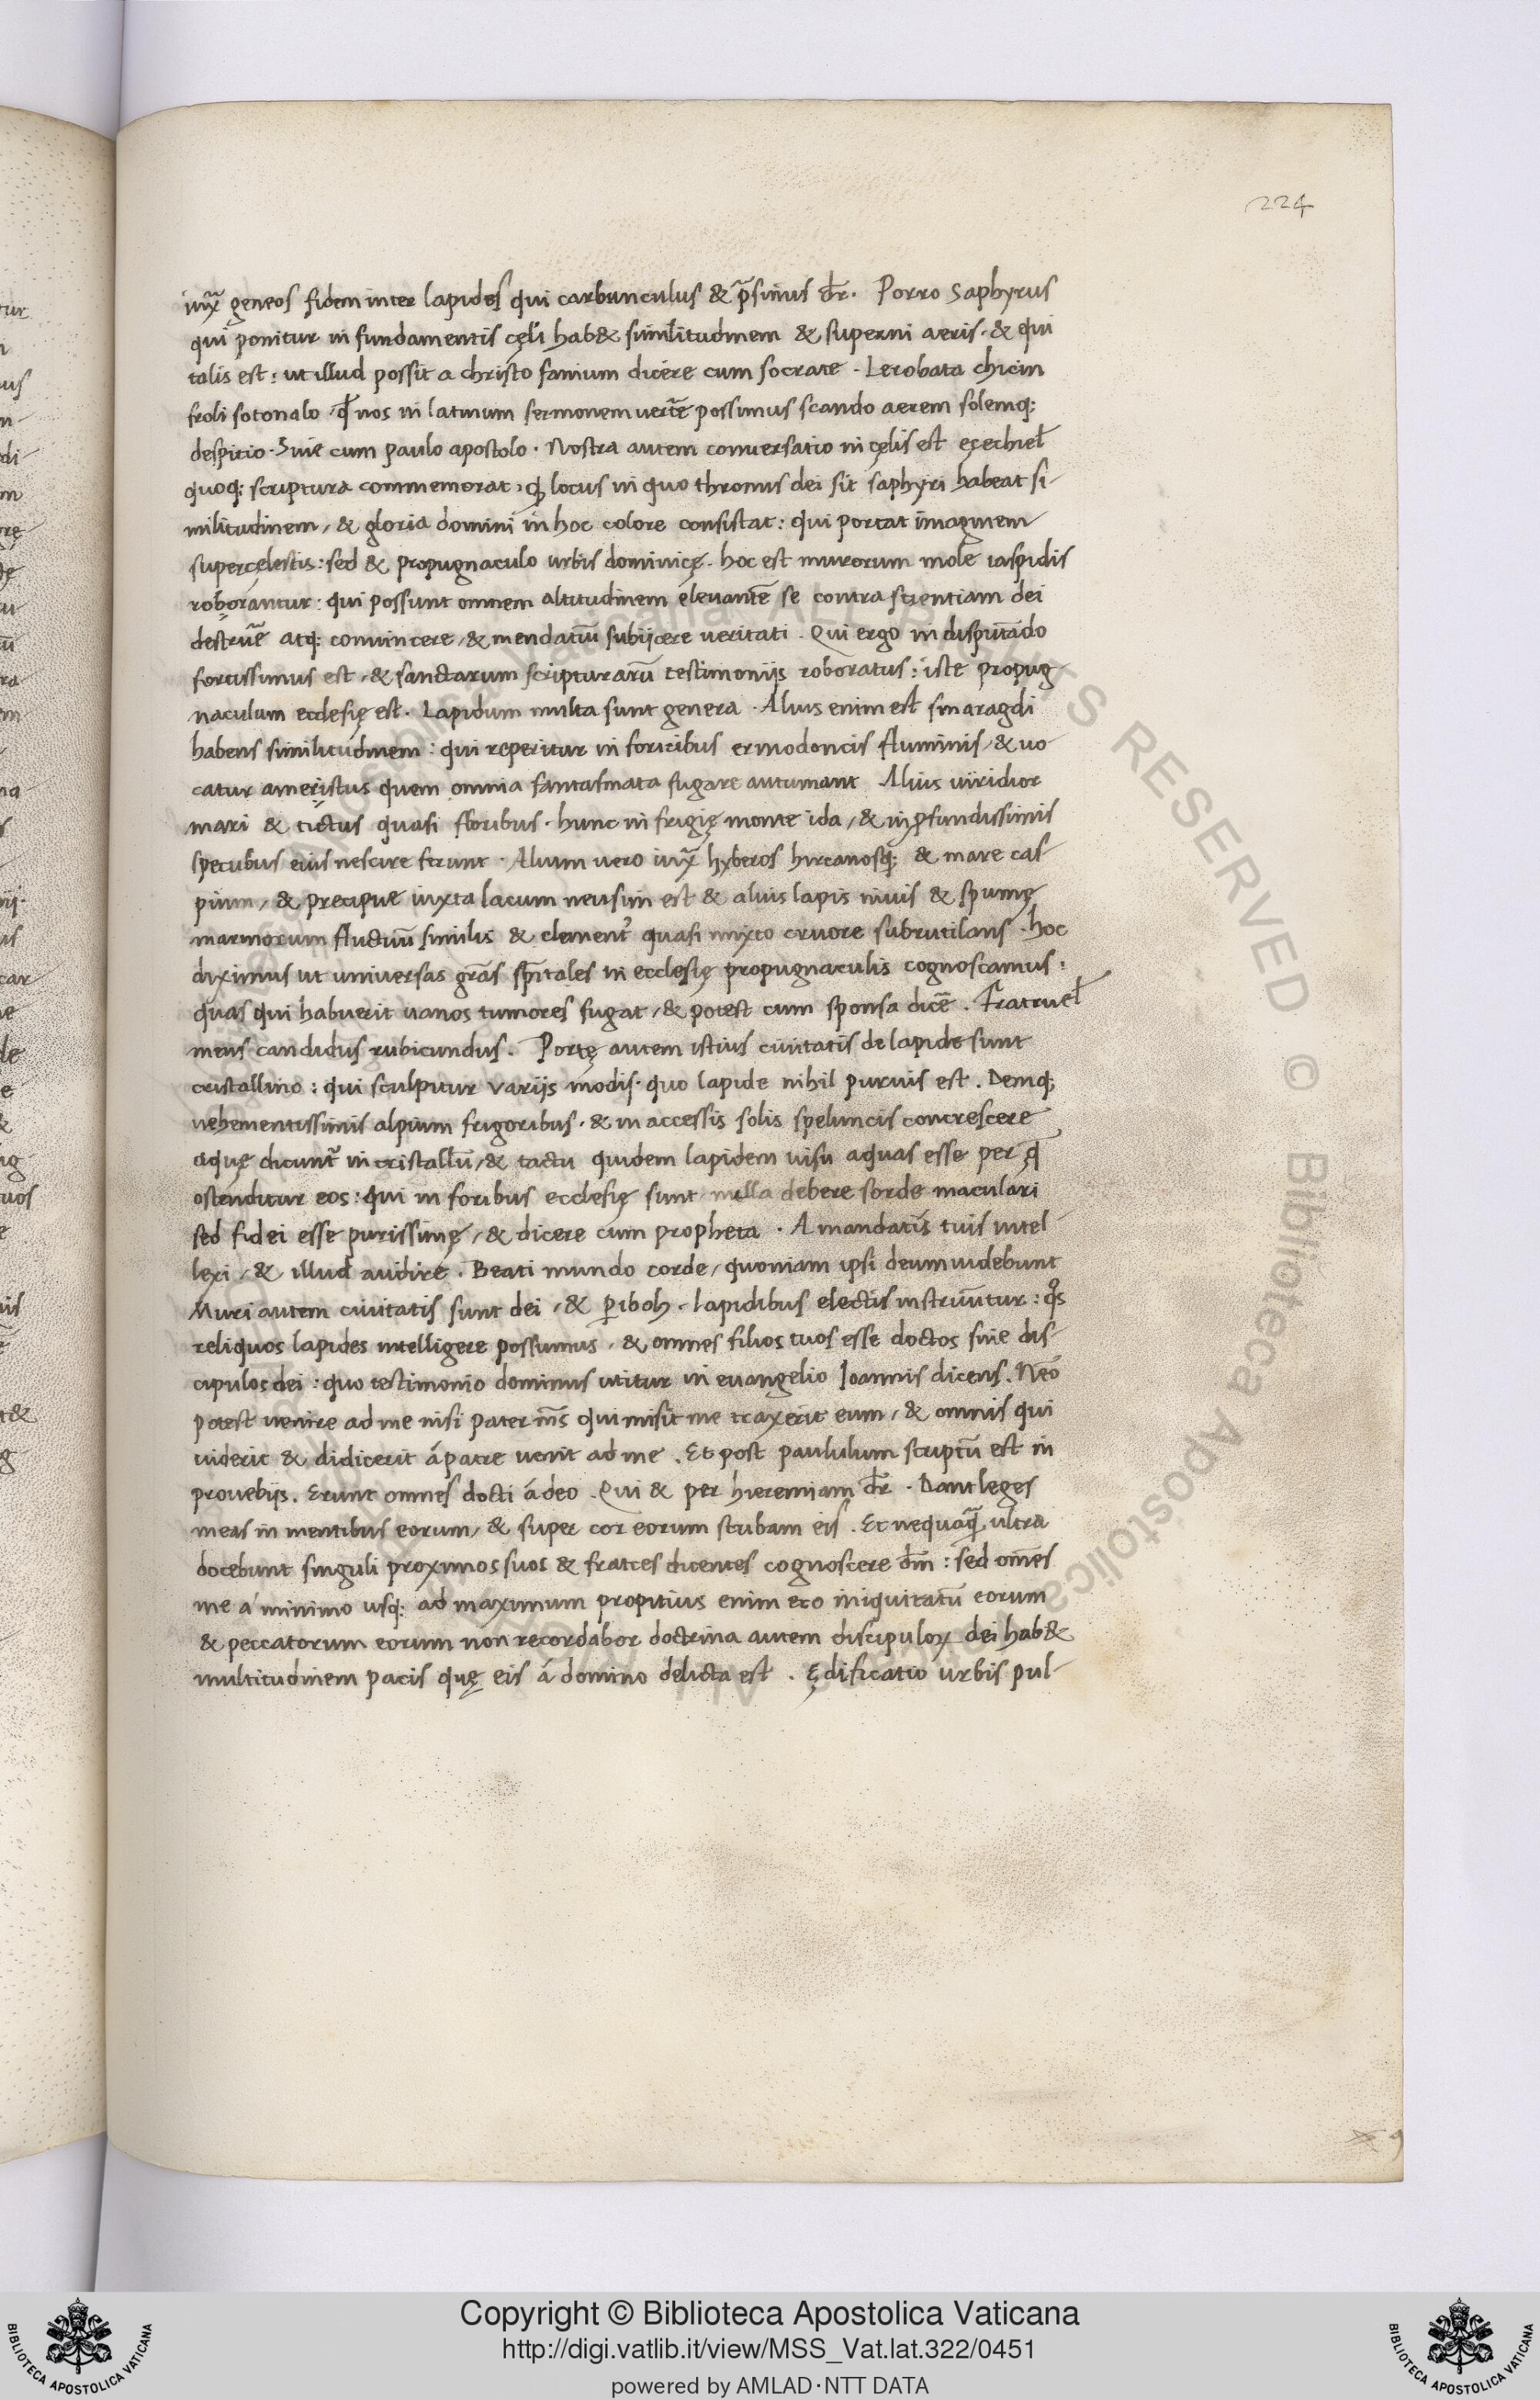 224
iuxª geneos fidem inter lapides qui carbunculus & p̃sinus dr̄. Porro saphyrus
qui ponitur in fundamentis cęli hab& similitudinem & superni aeris. & qui
talis est: ut illud possit a christo fanium dicere cum socrate. Lerobata chicin
froli sotonalo, qđ nos in latinum sermonem uert̄e possimus scando aerem solemq;
despicio. Siue cum paulo apostolo. Nostra autem conuersatio in cęlis est eçechiel
quoq; scriptura commemorat, ꝙ locus in quo thronus dei sit saphyri habeat si-
militudinem, & gloria domini in hoc colore consistat: qui portat imaginem
supercęlestis: sed & propugnaculo urbis dominicę. hoc est murorum mole iaspidis
roborantur: qui possunt omnem altitudinem eleuantē se contra scientiam dei
destruē atq; conuincere, & mendatiū subijcere ueritati. Qui ergo in disputādo
fortissimus est, & sanctarum scripturarū testimonijs roboratus: iste propug-
naculum ecclesię est. Lapidum multa sunt genera. Alius enim est smaragdi
habens similitudinem: qui reperitur in foricibus ermodoncis fluminis, & uo-
catur ameristus quem omnia fantasmata fugare autumant Alius uiridior
mari & tictus quasi floribus. hunc in frigię monte ida, & in ꝓfundissimis
specubus eius nescire ferunt. Alium uero iuxª hyberos hircanosq; & mare cas-
pium, & precipue iuxta lacum neusim est & alius lapis niuis & spumę
marmorum fluctuū similis & clement̃ quasi mixto cruore subrutilans. hoc
diximus ut uniuersas gr̄as sp̄itales in ecclesię propugnaculis cognoscamus:
quas qui habuerit uanos tumores fugat, & potest cum sponsa dicē. Fratruel
meus candidus rubicundus. Portę autem istius ciuitatis de lapide sunt
cristallino: qui sculpitur varijs modis. quo lapide nihil purius est. Deniq;
uehementissimis alpium frigoribus. & in accessis solis speluncis concrescere
aquę dicunt̃ in cristallū, & tactu quidem lapidem uisu aquas esse per qđ
ostenditur eos: qui in foribus ecclesię sunt nulla debere sorde maculari
sed fidei esse purissimę, & dicere cum propheta. A mandatis tuis intel-
lexi, & illud audire. Beati mundo corde, quoniam ipsi deum uidebunt
Muri autem ciuitatis sunt dei, & ꝑiboh. lapidibus electis instruūtur: qͦs
reliquos lapides intelligere possumus, & omnes filios tuos esse doctos siue dis-
cipulos dei: quo testimonio dominus utitur in euangelio Ioannis dicens. Neō
potest uenire ad me nisi pater m̄s qui misit me traxerit eum, & omnis qui
uiderit & didicerit á patre uenit ad me. Et post paululum scriptū est in
prouebijs. Erunt omnes docti á deo. Qui & per hieremiam dr̄. Dant leges
meas in mentibus eorum, & super cor eorum scribam eis. Et nequaqª ultra
docebunt singuli proximos suos & fratres dicentes cognoscere dn̄m: sed om̄es
me á minimo usq; ad maximum propitius enim ero iniquitatū eorum
& peccatorum eorum non recordabor doctrina autem discipuloꝝ dei hab&
multitudinem pacis quę eis á domino delicta est. Ędificatio urbis pul-
Copyright © Biblioteca Apostolica Vaticana
http://digi.vatlib.it/view/MSS_Vat.lat.322/0451
powered by AMLAD·NTT DATA
BIBLIOTECA APOSTOLICA VATICANA
BIBLIOTECA APOSTOLICA VATICANA